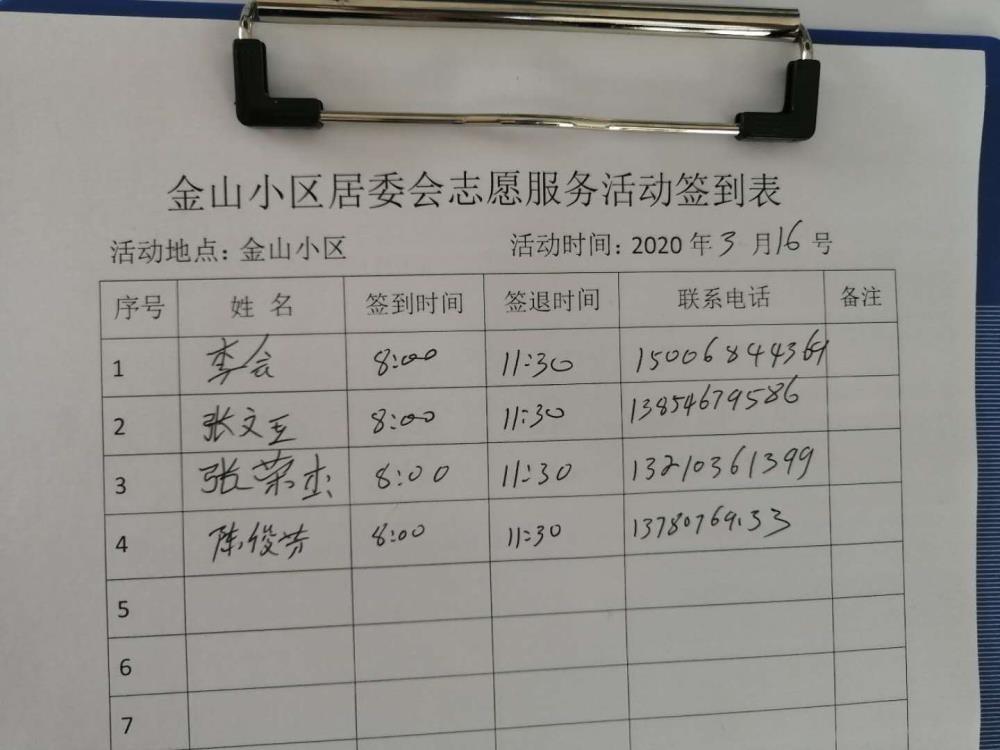 金山小区居委会志愿服务活动签到表
活动地点：金山小区 活动时间：2020 年 3 月 16 号
序号 姓 名 签到时间 签退时间 联系电话 备注
1 李会 8:00 11:30 15006844364
2 张文玉 8:00 11:30 13854679586
3 张荣杰 8:00 11:30 13210361399
4 陈俊芳 8:00 11:30
5
6
7